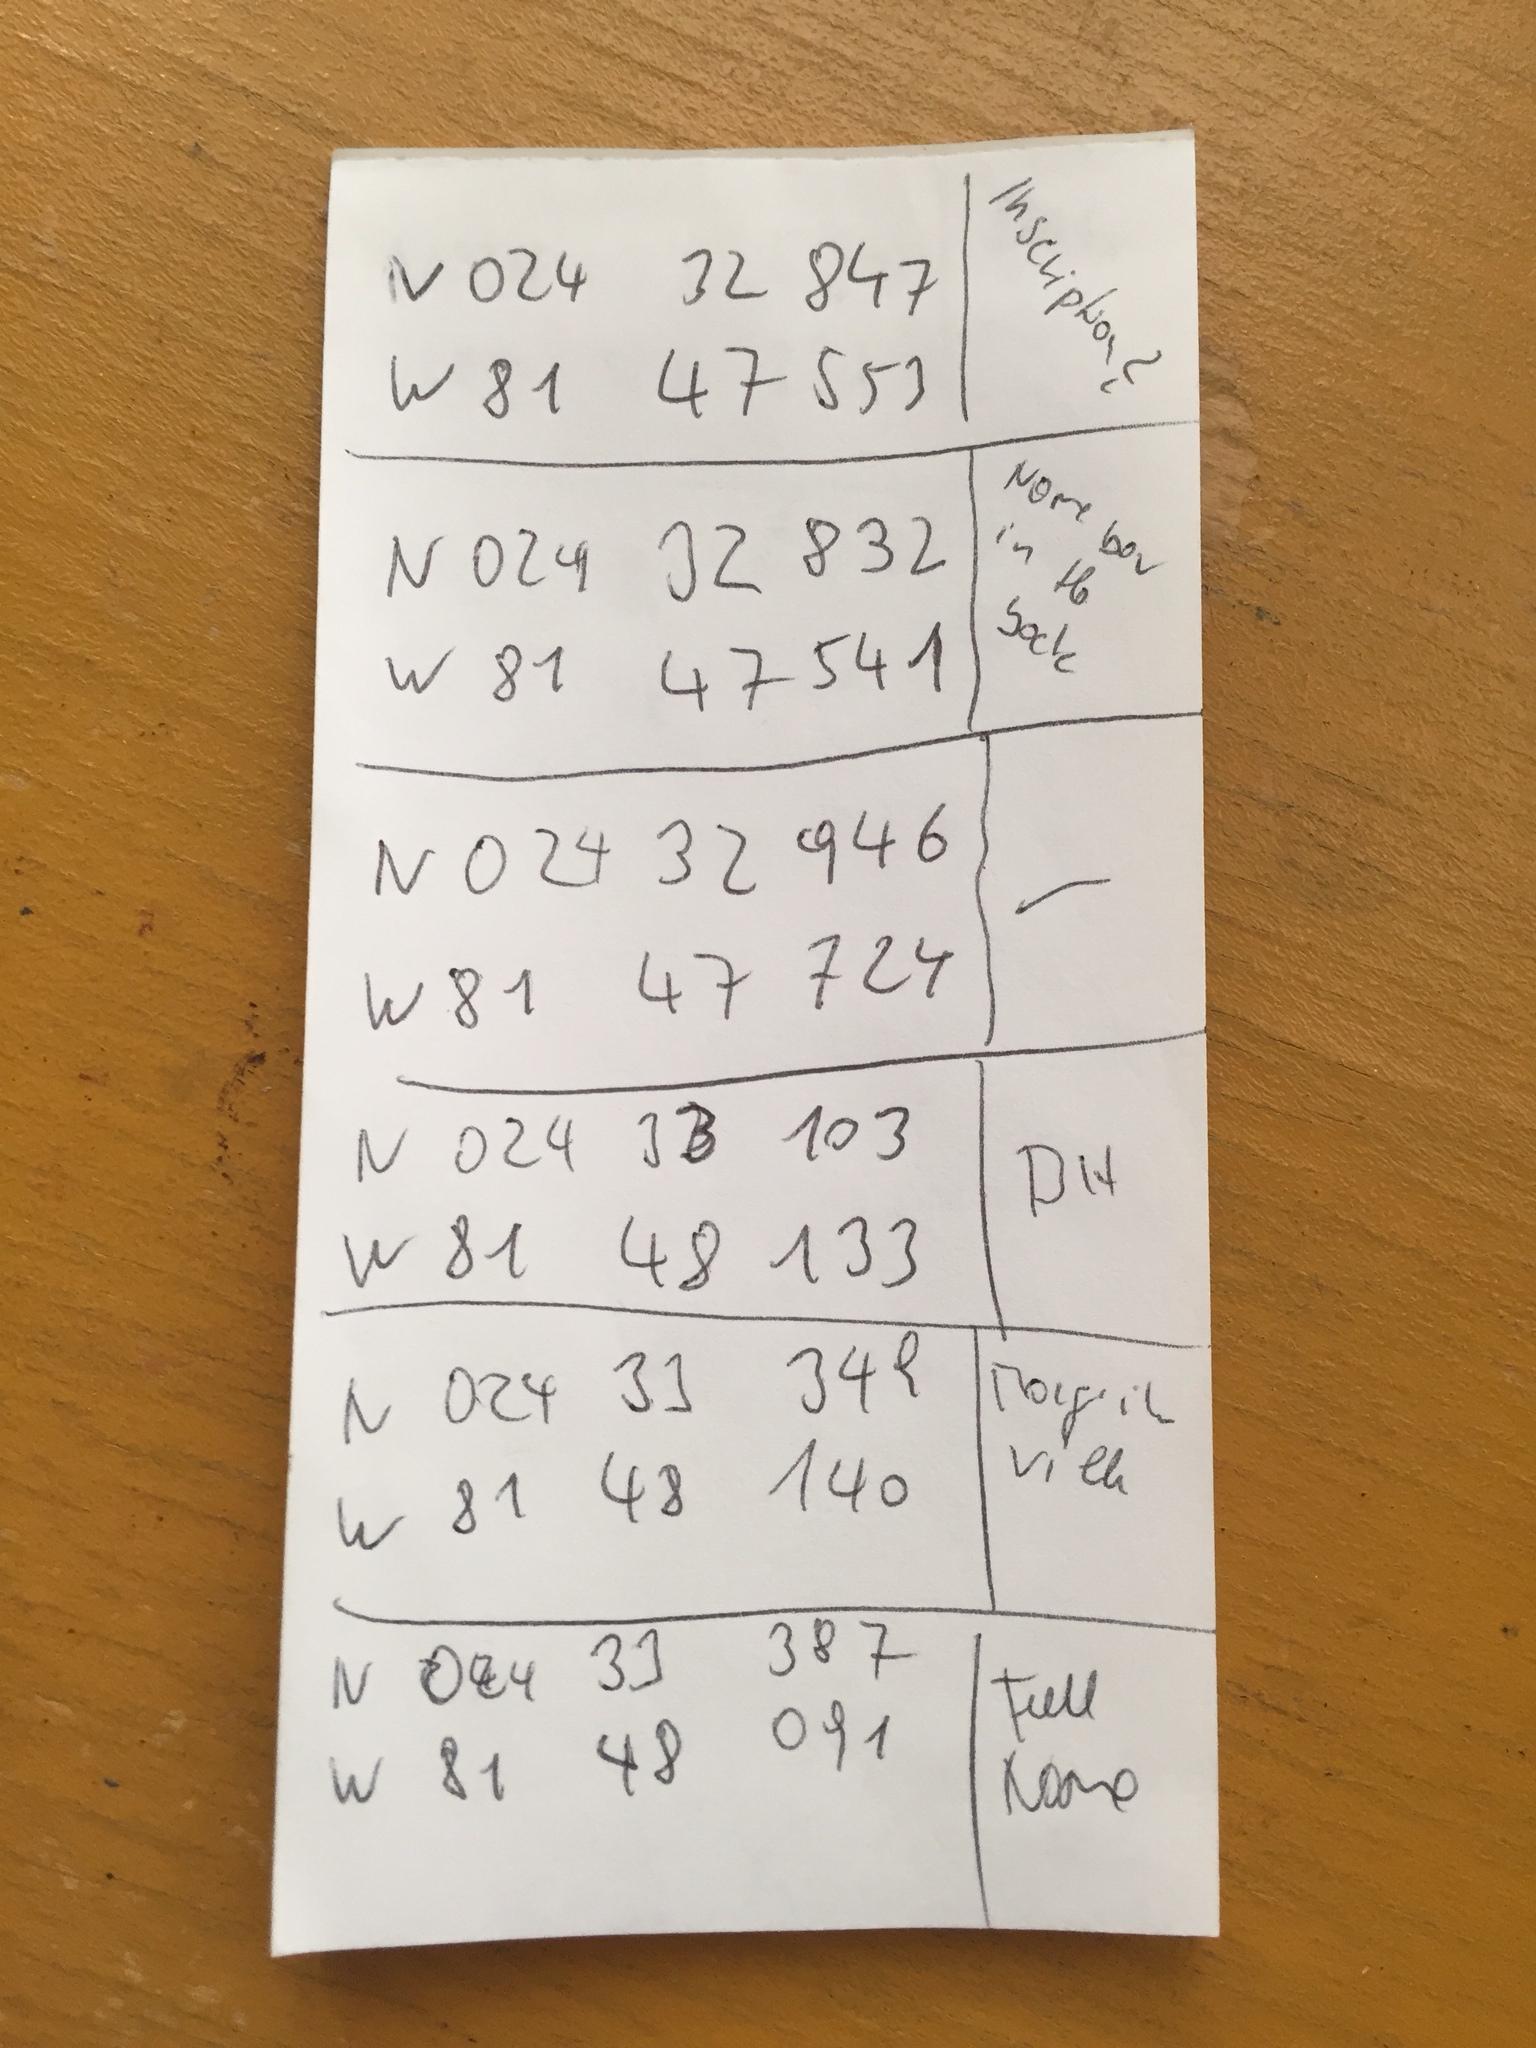 N 024 32 847
W 81 47 553
Inscription?
N 024 32 832
W 81 47 541
Name
in the
Sock
N 024 32 946
W 81 47 724
N 024 33 103
W 81 48 133
DH
N 024 33 349
W 81 48 140
N 024 33 387
W 81 48 091
Full
Name